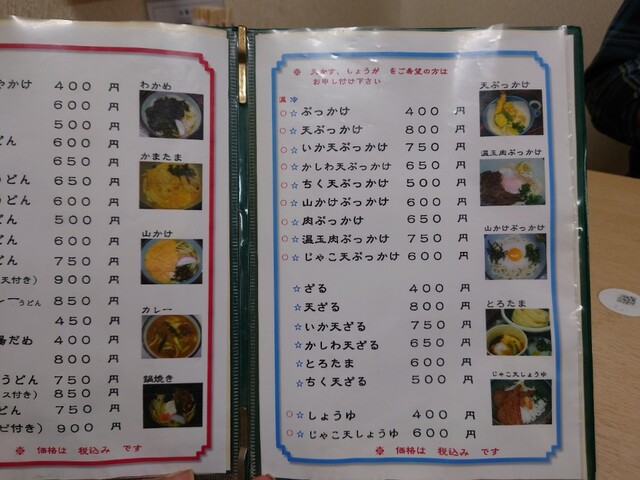 やかけ 400 円
600 円
500 円
どん 600 円
650 円
うどん 650 円
うどん 600 円
どん 500 円
どん 600 円
どん 750 円
天付き) 900 円
レーうどん 850 円
450 円
400 円
800 円
うどん 750 円
ス付き) 850 円
どん 750 円
ビ付き) 900 円
※ 価格は 税込み です
わかめ
かまたま
山かけ
カレー
鍋焼き
※ 天かす、しょうが をご希望の方は
お申し付け下さい
温 冷
○☆ぶっかけ 400 円
○☆天ぶっかけ 800 円
○☆いか天ぶっかけ 750 円
○☆かしわ天ぶっかけ 650 円
○☆ちく天ぶっかけ 500 円
○☆山かけぶっかけ 600 円
○☆肉ぶっかけ 650 円
○☆温玉肉ぶっかけ 750 円
○☆じゃこ天ぶっかけ 600 円
☆ざる 400 円
☆天ざる 800 円
☆いか天ざる 750 円
☆かしわ天ざる 650 円
☆とろたま 600 円
☆ちく天ざる 500 円
○☆しょうゆ 400 円
○☆じゃこ天しょうゆ 600 円
※ 価格は 税込み です
天ぶっかけ
温玉肉ぶっかけ
山かけぶっかけ
とろたま
じゃこ天しょうゆ